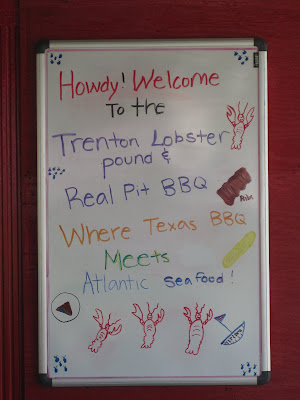 Howdy! Welcome
To the
Trenton Lobster
pound &
Real Pit BBQ
Where Texas BBQ
Meets
Atlantic seafood!